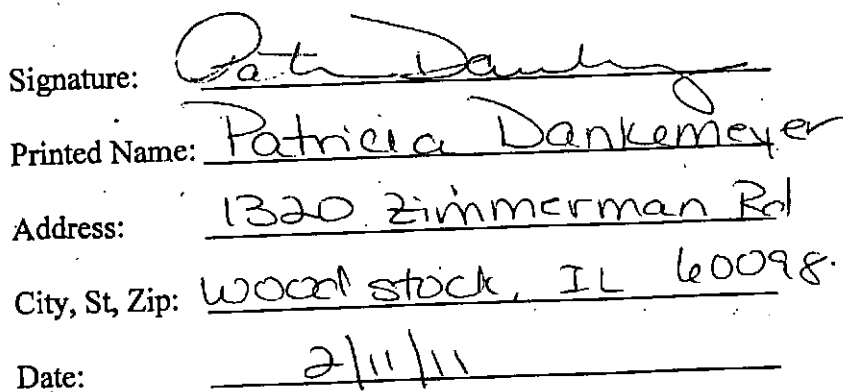 Signature: Pat Dank
Printed Name: Patricia Dankemeyer
Address: 1320 Zimmerman Rd
City, St, Zip: Woodstock, IL 60098.
Date: 2/11/11